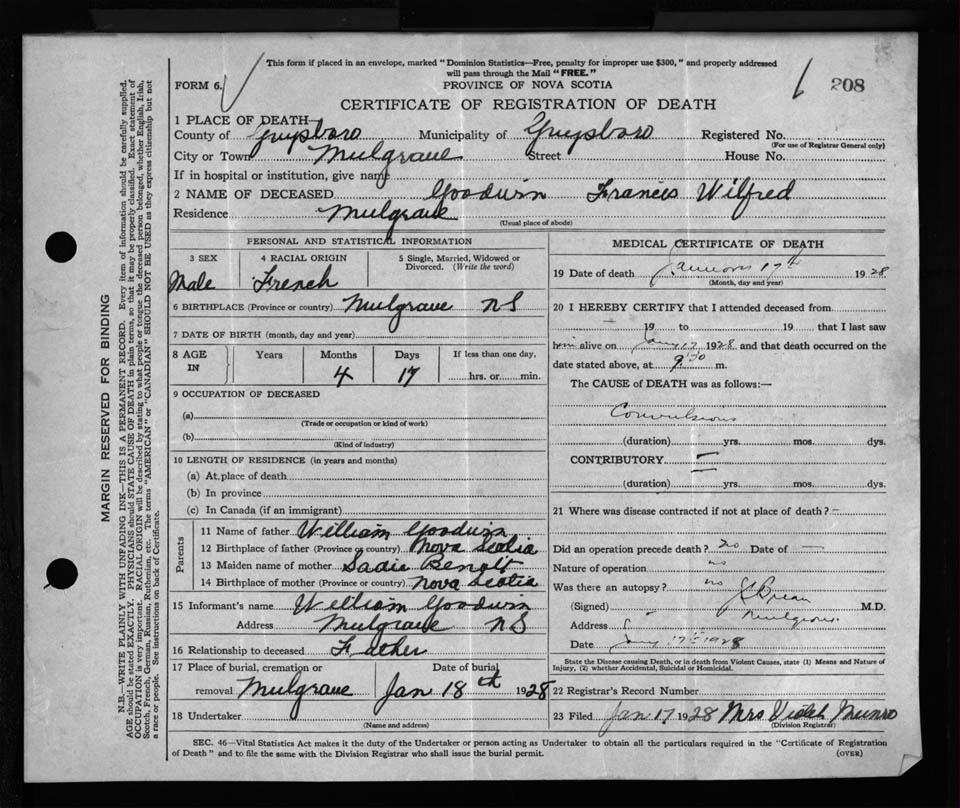 This form if placed in an envelope, marked "Dominion Statistics—Free, penalty for improper use $300," and properly addressed
will pass through the Mail "FREE."
FORM 6.
PROVINCE OF NOVA SCOTIA
208
CERTIFICATE OF REGISTRATION OF DEATH
1 PLACE OF DEATH—
County of Guysboro Municipality of Guysboro Registered No.
(For use of Registrar General only)
City or Town Mulgrave Street House No.
If in hospital or institution, give name
2 NAME OF DECEASED Goodwin Francis Wilfred
Residence Mulgrave
(Usual place of abode)
PERSONAL AND STATISTICAL INFORMATION
3 SEX 4 RACIAL ORIGIN 5 Single, Married, Widowed or
Divorced. (Write the word)
Male French
6 BIRTHPLACE (Province or country) Mulgrave NS
7 DATE OF BIRTH (month, day and year)
8 AGE Years Months Days If less than one day,
IN 4 17 hrs. or min.
9 OCCUPATION OF DECEASED
(a)
(Trade or occupation or kind of work)
(b)
(Kind of industry)
10 LENGTH OF RESIDENCE (in years and months)
(a) At place of death
(b) In province
(c) In Canada (if an immigrant)
Parents
11 Name of father William Goodwin
12 Birthplace of father (Province or country) Nova Scotia
13 Maiden name of mother Sadie Benoit
14 Birthplace of mother (Province or country) Nova Scotia
15 Informant's name William Goodwin
Address Mulgrave NS
16 Relationship to deceased Father
17 Place of burial, cremation or Date of burial
removal Mulgrave Jan 18th 1928
18 Undertaker
(Name and address)
MEDICAL CERTIFICATE OF DEATH
19 Date of death January 17th 1928
(Month, day and year)
20 I HEREBY CERTIFY that I attended deceased from
19 to 19 that I last saw
him alive on Jany 17 1928 and that death occurred on the
date stated above, at 9:30 m.
The CAUSE of DEATH was as follows:—
Convulsions
(duration) yrs. mos. dys.
CONTRIBUTORY —
(duration) yrs. mos. dys.
21 Where was disease contracted if not at place of death? —
Did an operation precede death? no Date of —
Nature of operation no
Was there an autopsy? no
(Signed) M.D.
Address Mulgrave
Date Jany 17th 1928
State the Disease causing Death, or in death from Violent Causes, state (1) Means and Nature of
Injury, (2) whether Accidental, Suicidal or Homicidal.
22 Registrar's Record Number
23 Filed Jan 17 1928 Mrs Violet Munro
(Division Registrar)
SEC. 46—Vital Statistics Act makes it the duty of the Undertaker or person acting as Undertaker to obtain all the particulars required in the "Certificate of Registration
of Death" and to file the same with the Division Registrar who shall issue the burial permit. (OVER)
MARGIN RESERVED FOR BINDING
N.B.—WRITE PLAINLY WITH UNFADING INK—THIS IS A PERMANENT RECORD. Every item of information should be carefully supplied.
AGE should be stated EXACTLY. PHYSICIANS should STATE CAUSE OF DEATH in plain terms, so that it may be properly classified. Exact statement of
OCCUPATION is very important. RACIAL ORIGIN will be described by stating to what people or tongue the deceased person belonged, whether English, Irish,
Scotch, French, German, Russian, Ruthenian, etc. The terms "AMERICAN" or "CANADIAN" SHOULD NOT BE USED as they express citizenship but not
a race or people. See instructions on back of Certificate.